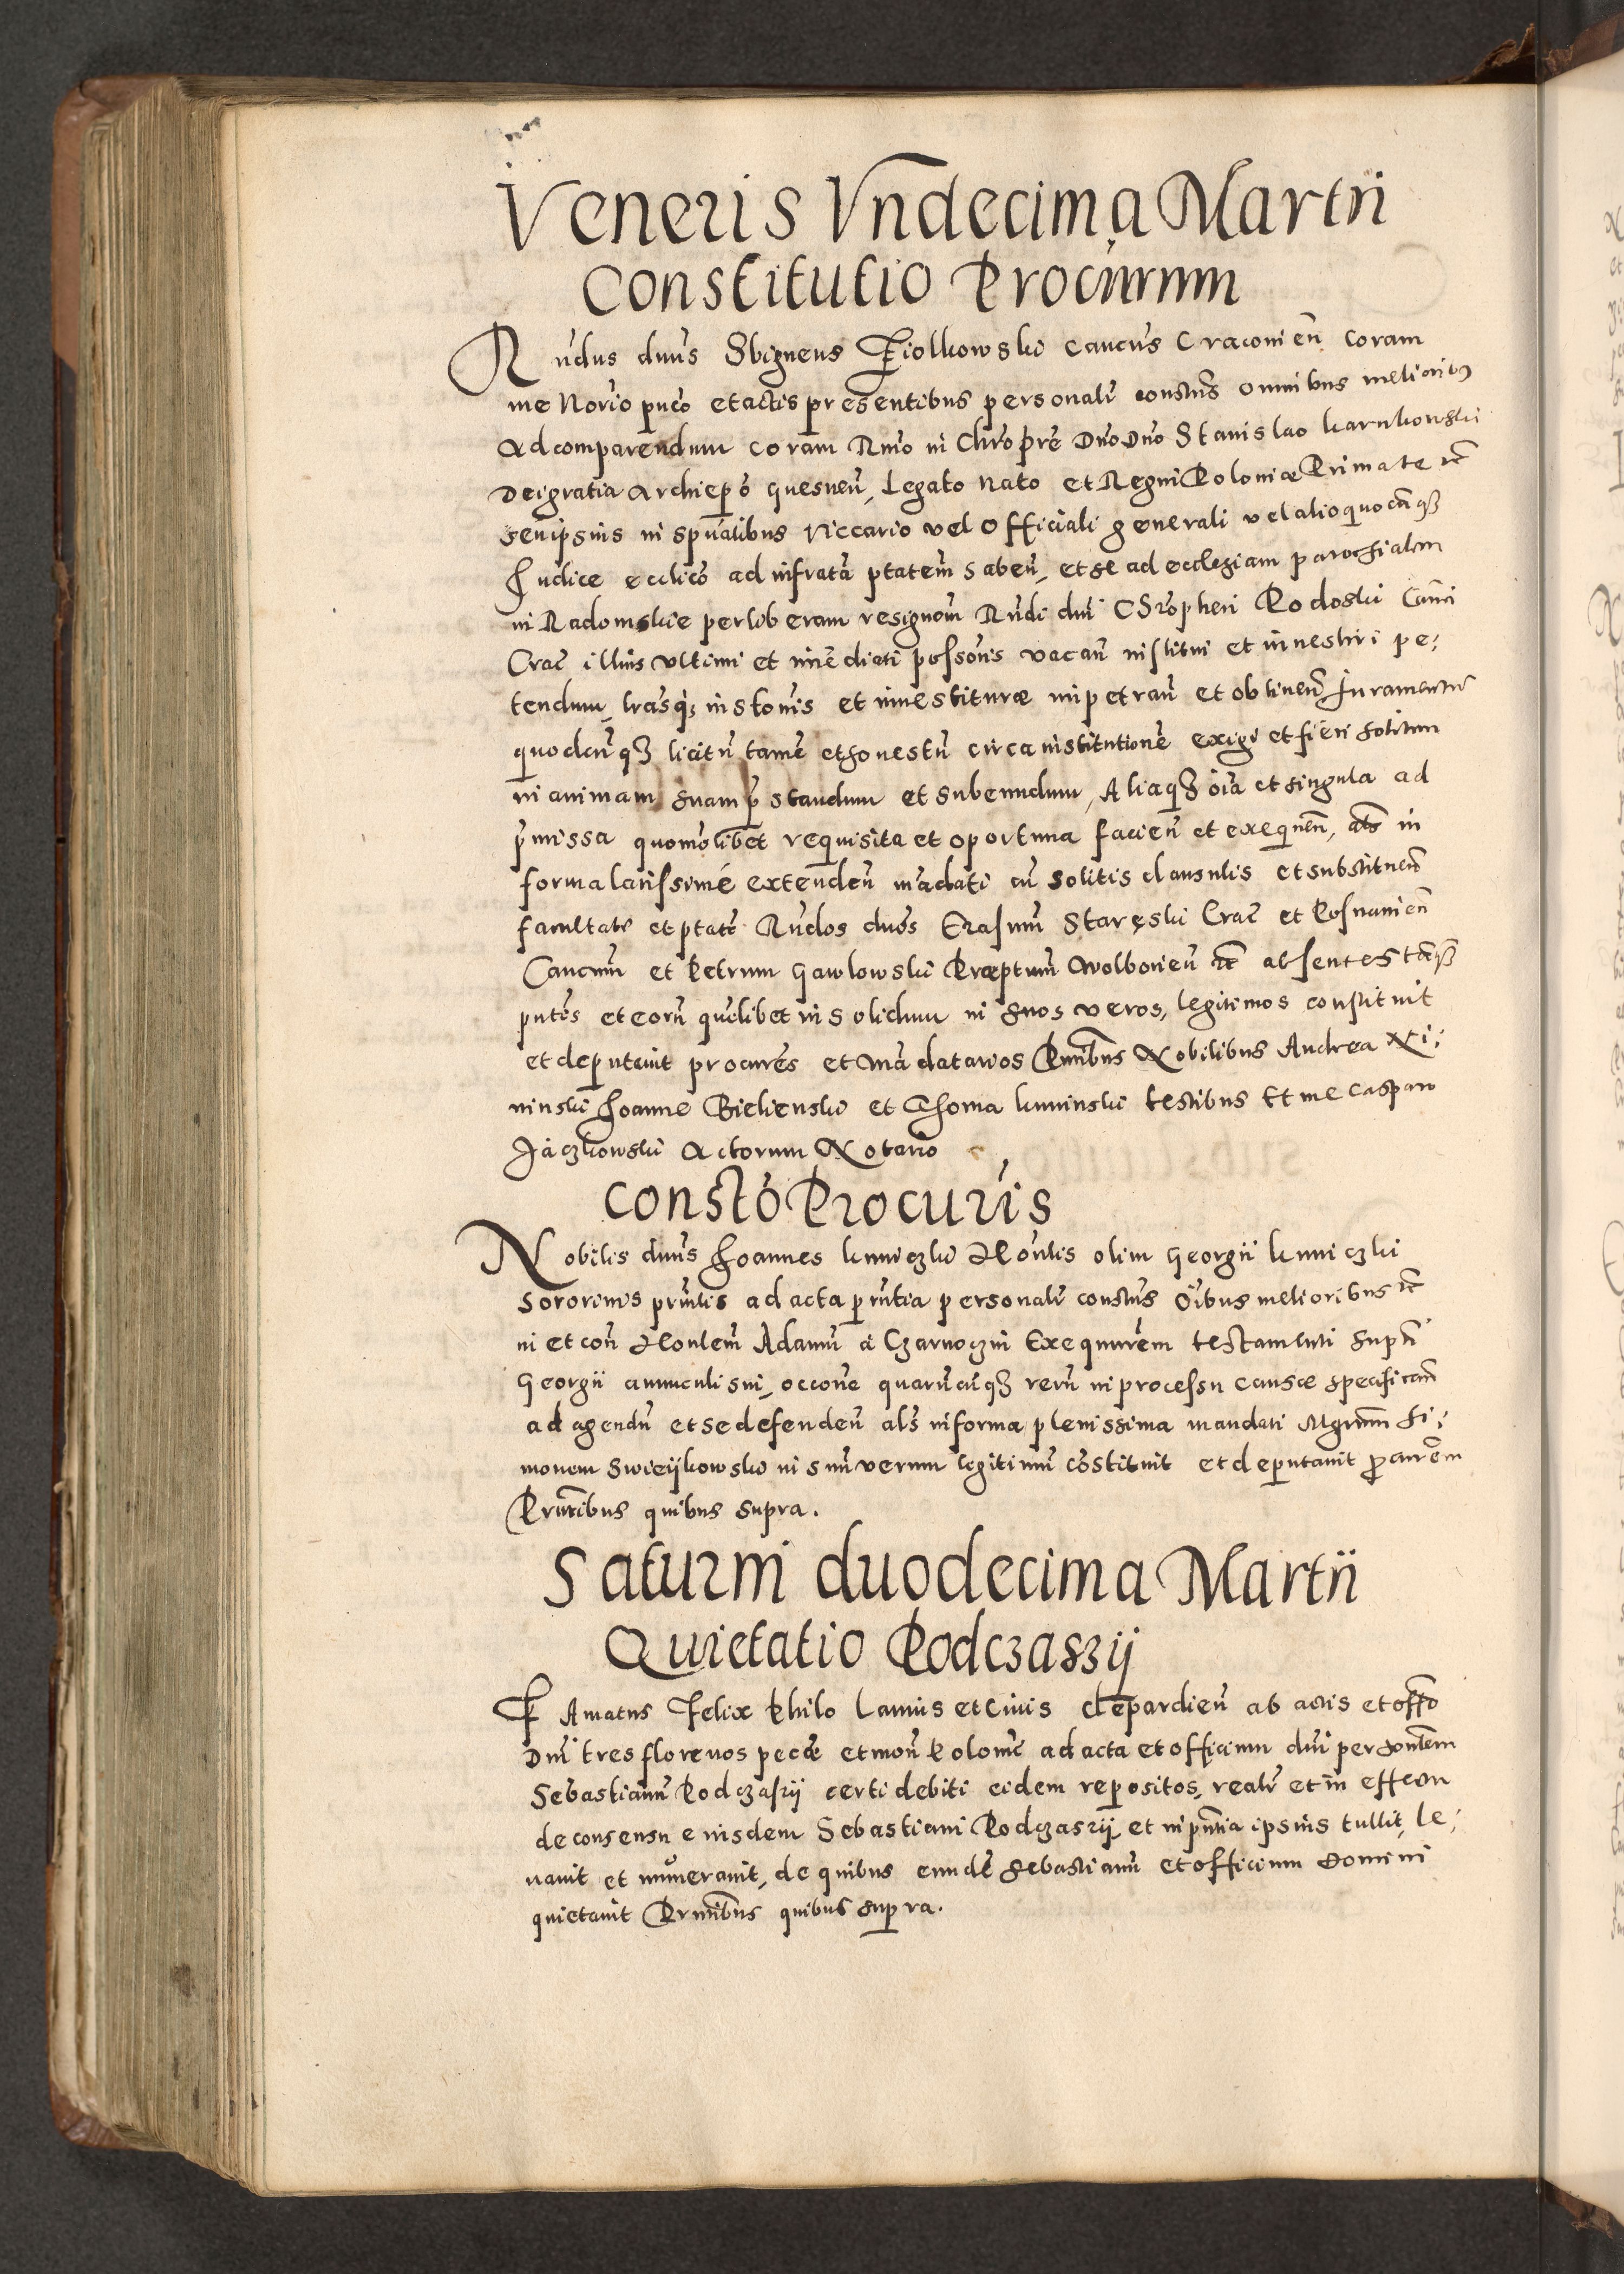 Veneris Vndecima Martii
Constitutio Procurum
Rndus dnus Sbigneus Fiolkowski cancus Craconien coram
me Norio puco et actis presentibus personalr constus omnibus melioribus
Ad comparendum coram Rmo in Chro pre Dno Dno Stanislao karnkowski
Dei gratia Archiepo gnesnen, Legato nato et Regni Poloniæ Primate etc
seu ipsius in spualibus viccario vel officiali generali vel alio quocunque
Judice ecclico ad infrata ptatem haben, et se ad ecclesiam parochialem
in Radomskie per liberam resignom Rndi dni Chropheri Rodoski Canci
Crac illius vltimi et imediati possoris vacan institui et inuestiri pe:
tendum, lrasq; instonis et inuestituræ impetran et obtinen Juramentum
quodcunque licitu tame et honestu circa institutione exigi et fieri solitum
in animam suam prestandum et subeundum, Aliaque oia et singula ad
premissa quomolibet requisita et oportuna facien et exequen, als in
forma latissime extenden madati cu solitis clausulis et substituen
facultate et ptate Rndos dnos Erasmu Staręski Crac et Posnanien
Cancum et Petrum Gawlowski Præptum Wolborien etc absentes tanque
pntes et eoru quelibet in solidum in suos veros, legitimos constituit
et deputauit procures et Madatarios Pntibus Nobilibus Andrea Ni:
ninski Joanne Bielienski et Thoma kuninski testibus Et me Caspare
Jaczkowski Actorum Notario
Consto Procuris
Nobilis dnus Joannes kuniczki Honlis olim Georgii kuniczki
sororinus prmlis ad acta prntia personalr constus oibus melioribus etc
in et con Honlem Adamu a Czarnoczin Exequurem testamenti supti
Georgii auunculi sui, occone quarucuque reru in processu causæ specifican
ad agendu et se defenden als in forma plenissima mandati Mgrum Si:
monem Swieijkowski in suu verum legitimu costituit et deputauit procurem
Prntibus quibus supra.
Saturni duodecima Martii
Quietatio Podczaszij
Famatus Felix Philo Lanius et Ciuis clepardien ab actis et offo
Dni tres florenos pecæ et mon Polonic ad acta et officium dni per honlem
Sebastianu Podczaszij certi debiti eidem repositos, realr et in effcon
de consensu eiusdem Sebastiani Podczaszij, et in pntia ipsius tullit, le:
uauit et numerauit, de quibus eunde Sebastianu et officium domini
quietauit Prntibus quibus supra.